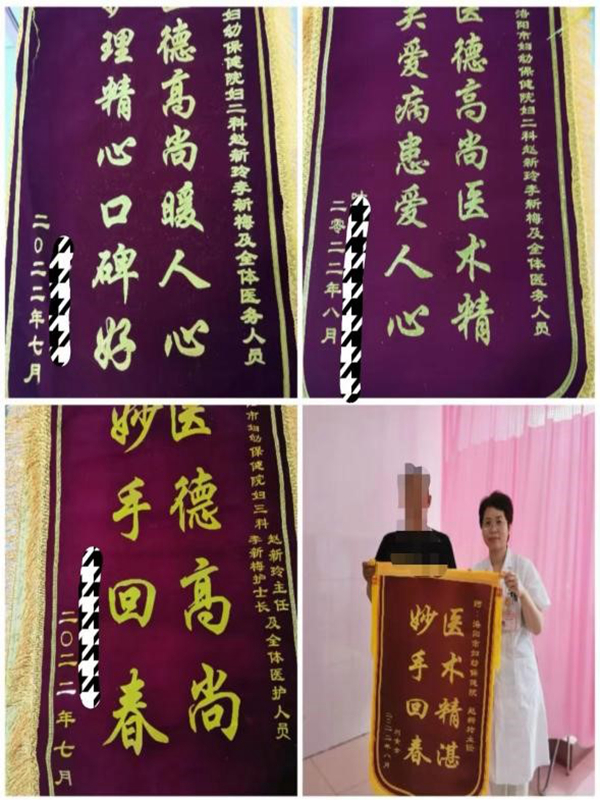 妇幼保健院妇二科赵新玲李新梅及全体医务人员
医德高尚暖人心
理精心口碑好
二〇二二年七月
洛阳市妇幼保健院妇二科赵新玲李新梅及全体医务人员
医德高尚医术精
关爱病患爱人心
二零二二年八月
市妇幼保健院妇三科
赵新玲主任
李新梅护士长
及全体医护人员
医德高尚
妙手回春
二〇二二年七月
赠：洛阳市妇幼保健院 赵新玲主任
医术精湛
妙手回春
二〇二二年八月